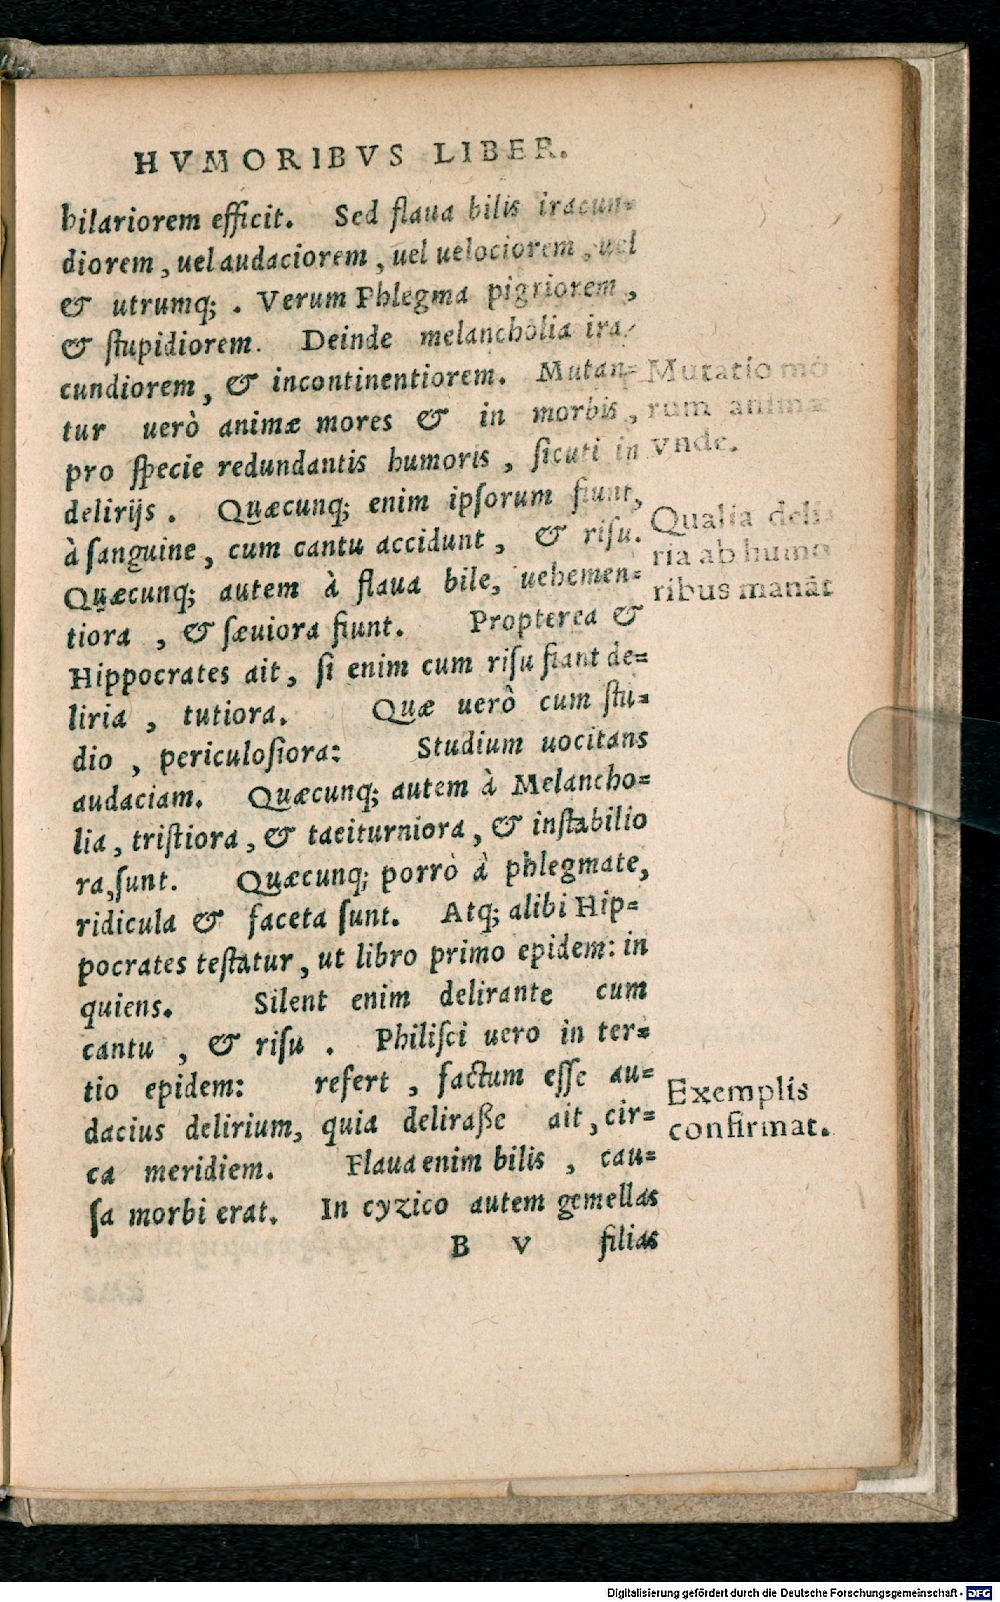 HVMORIBVS LIBER.
hilariorem efficit. Sed flaua bilis iracun=
diorem, uel audaciorem, uel uelociorem, uel
& utrumq;. Verum Phlegma pigriorem,
& stupidiorem. Deinde melancholia ira/
cundiorem, & incontinentiorem. Mutan=
tur uerò animæ mores & in morbis,
pro specie redundantis humoris, sicuti in
delirijs. Quæcunq; enim ipsorum fiunt,
à sanguine, cum cantu accidunt, & risu.
Quæcunq; autem à flaua bile, uehemen=
tiora, & sæuiora fiunt. Propterea &
Hippocrates ait, si enim cum risu fiant de=
liria, tutiora. Quæ uerò cum stu=
dio, periculosiora: Studium uocitans
audaciam. Quæcunq; autem à Melancho=
lia, tristiora, & taciturniora, & instabilio
ra, sunt. Quæcunq; porrò à phlegmate,
ridicula & faceta sunt. Atq; alibi Hip=
pocrates testatur, ut libro primo epidem: in
quiens. Silent enim delirante cum
cantu, & risu. Philisci uero in ter=
tio epidem: refert, factum esse au=
dacius delirium, quia deliraße ait, cir=
ca meridiem. Flaua enim bilis, cau=
sa morbi erat. In cyzico autem gemellas
B V filias
Mutatio mo
rum animæ
vnde.
Qualia deli
ria ab humo
ribus manāt
Exemplis
confirmat.
Digitalisierung gefördert durch die Deutsche Forschungsgemeinschaft - DFG